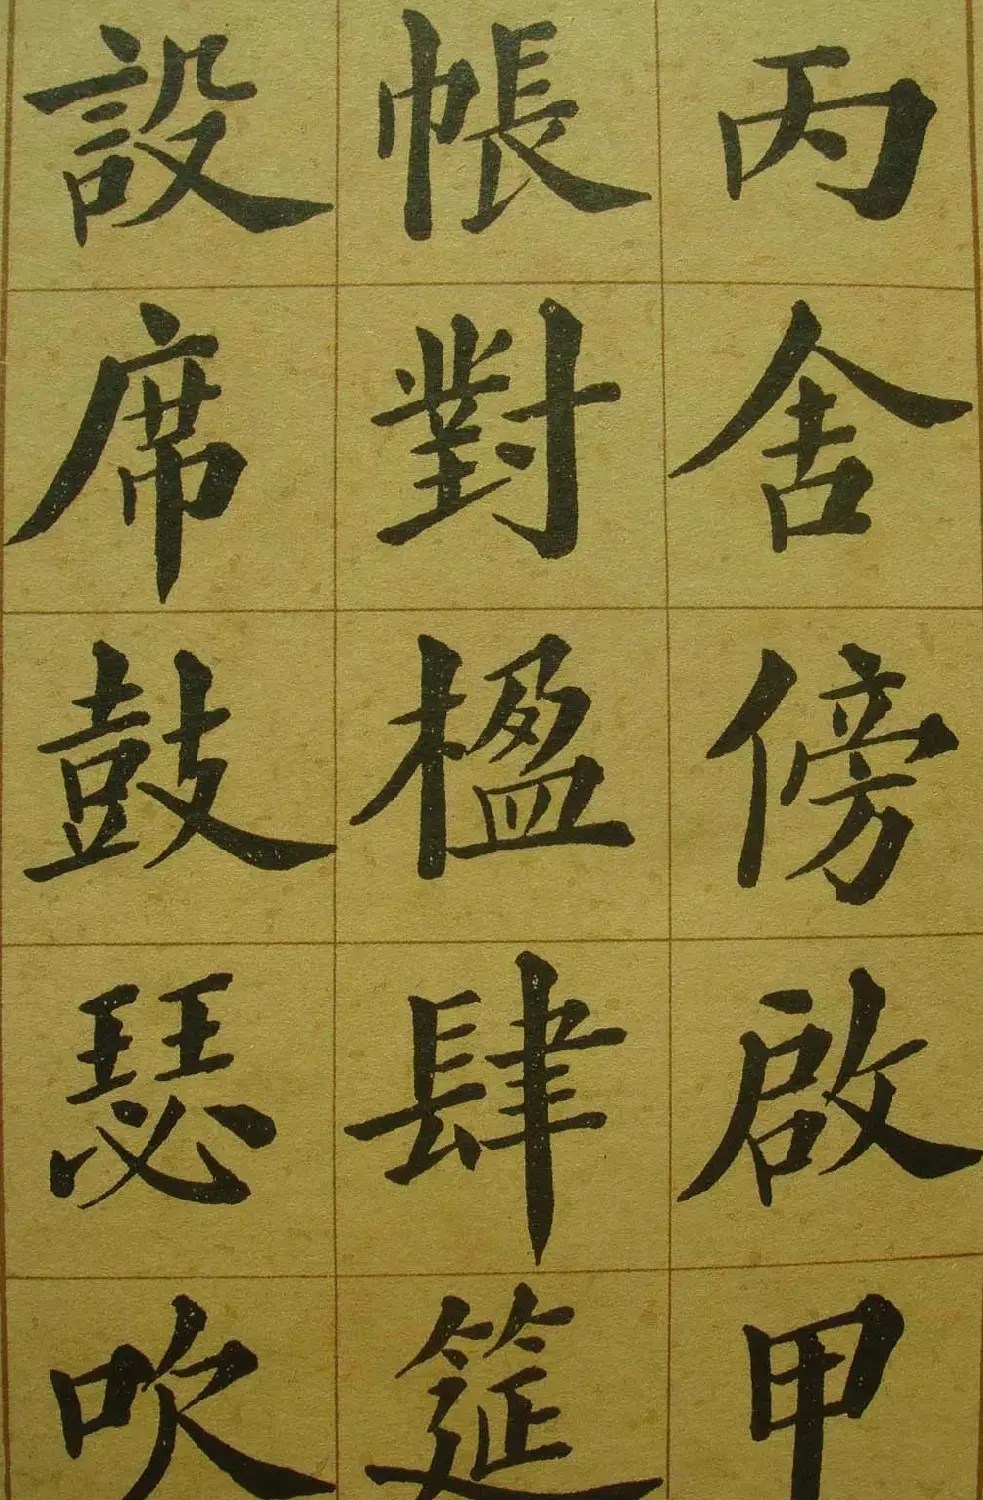 丙舍傍啟甲
帳對楹肆筵
設席鼓瑟吹